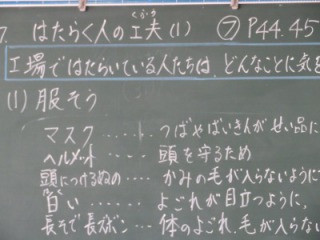 7. はたらく人の工夫(1) ⑦ P44.45
工場ではたらいている人たちは、どんなことに気を
(1) 服そう
マスク……つばやばいきんがせい品に
ヘルメット……頭を守るため
頭につけるぬの……かみの毛が入らないように
白い……よごれが目立つように、
長そで長ズボン…体のよごれ、毛が入らない